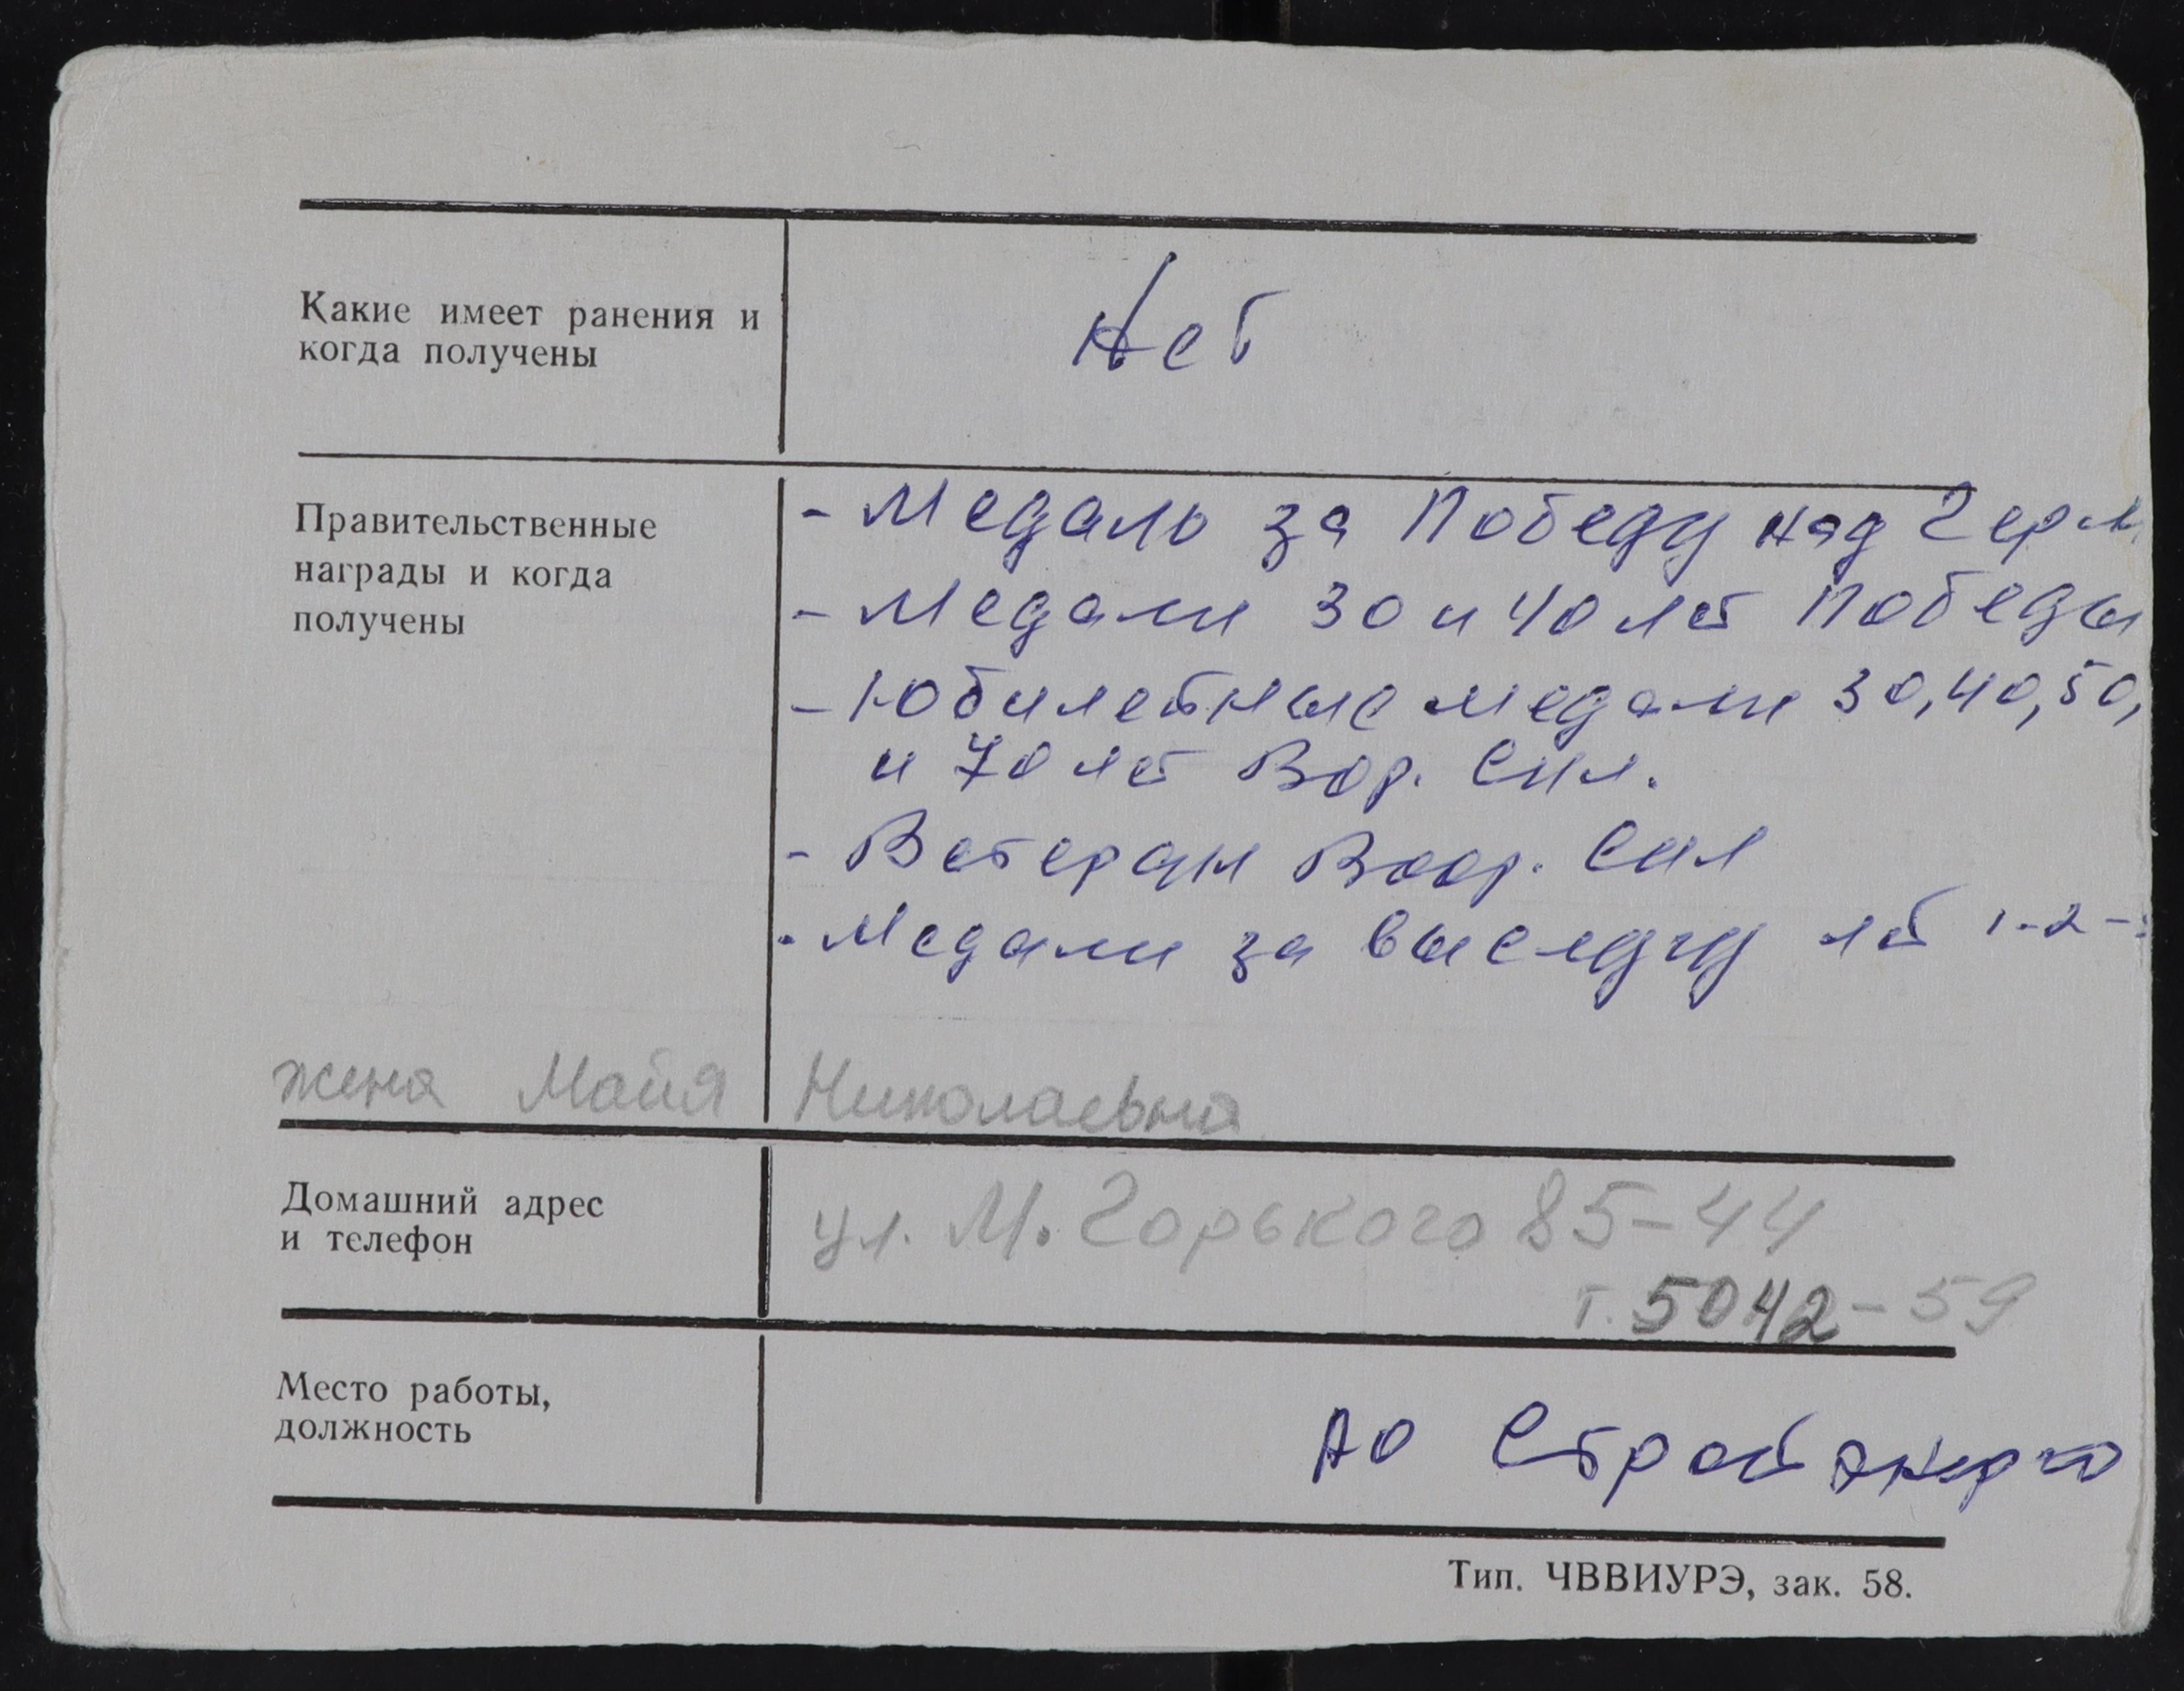 Какие имеет ранения и
когда получены
Нет
Правительственные
награды и когда
получены
- Медаль за Победу над Герм
- Медали 30 и 40 лет Победы
- Юбилейные медали 30, 40, 50,
и 70 лет Вор. Сил.
- Ветеран Воор. Сил
- Медали за выслугу лет 1-2-
жена Майя Николаевна
Домашний адрес
и телефон
ул. М. Горького 85-44
т. 5042-59
Место работы,
должность
АО Стройэнерго
Тип. ЧВВИУРЭ, зак. 58.